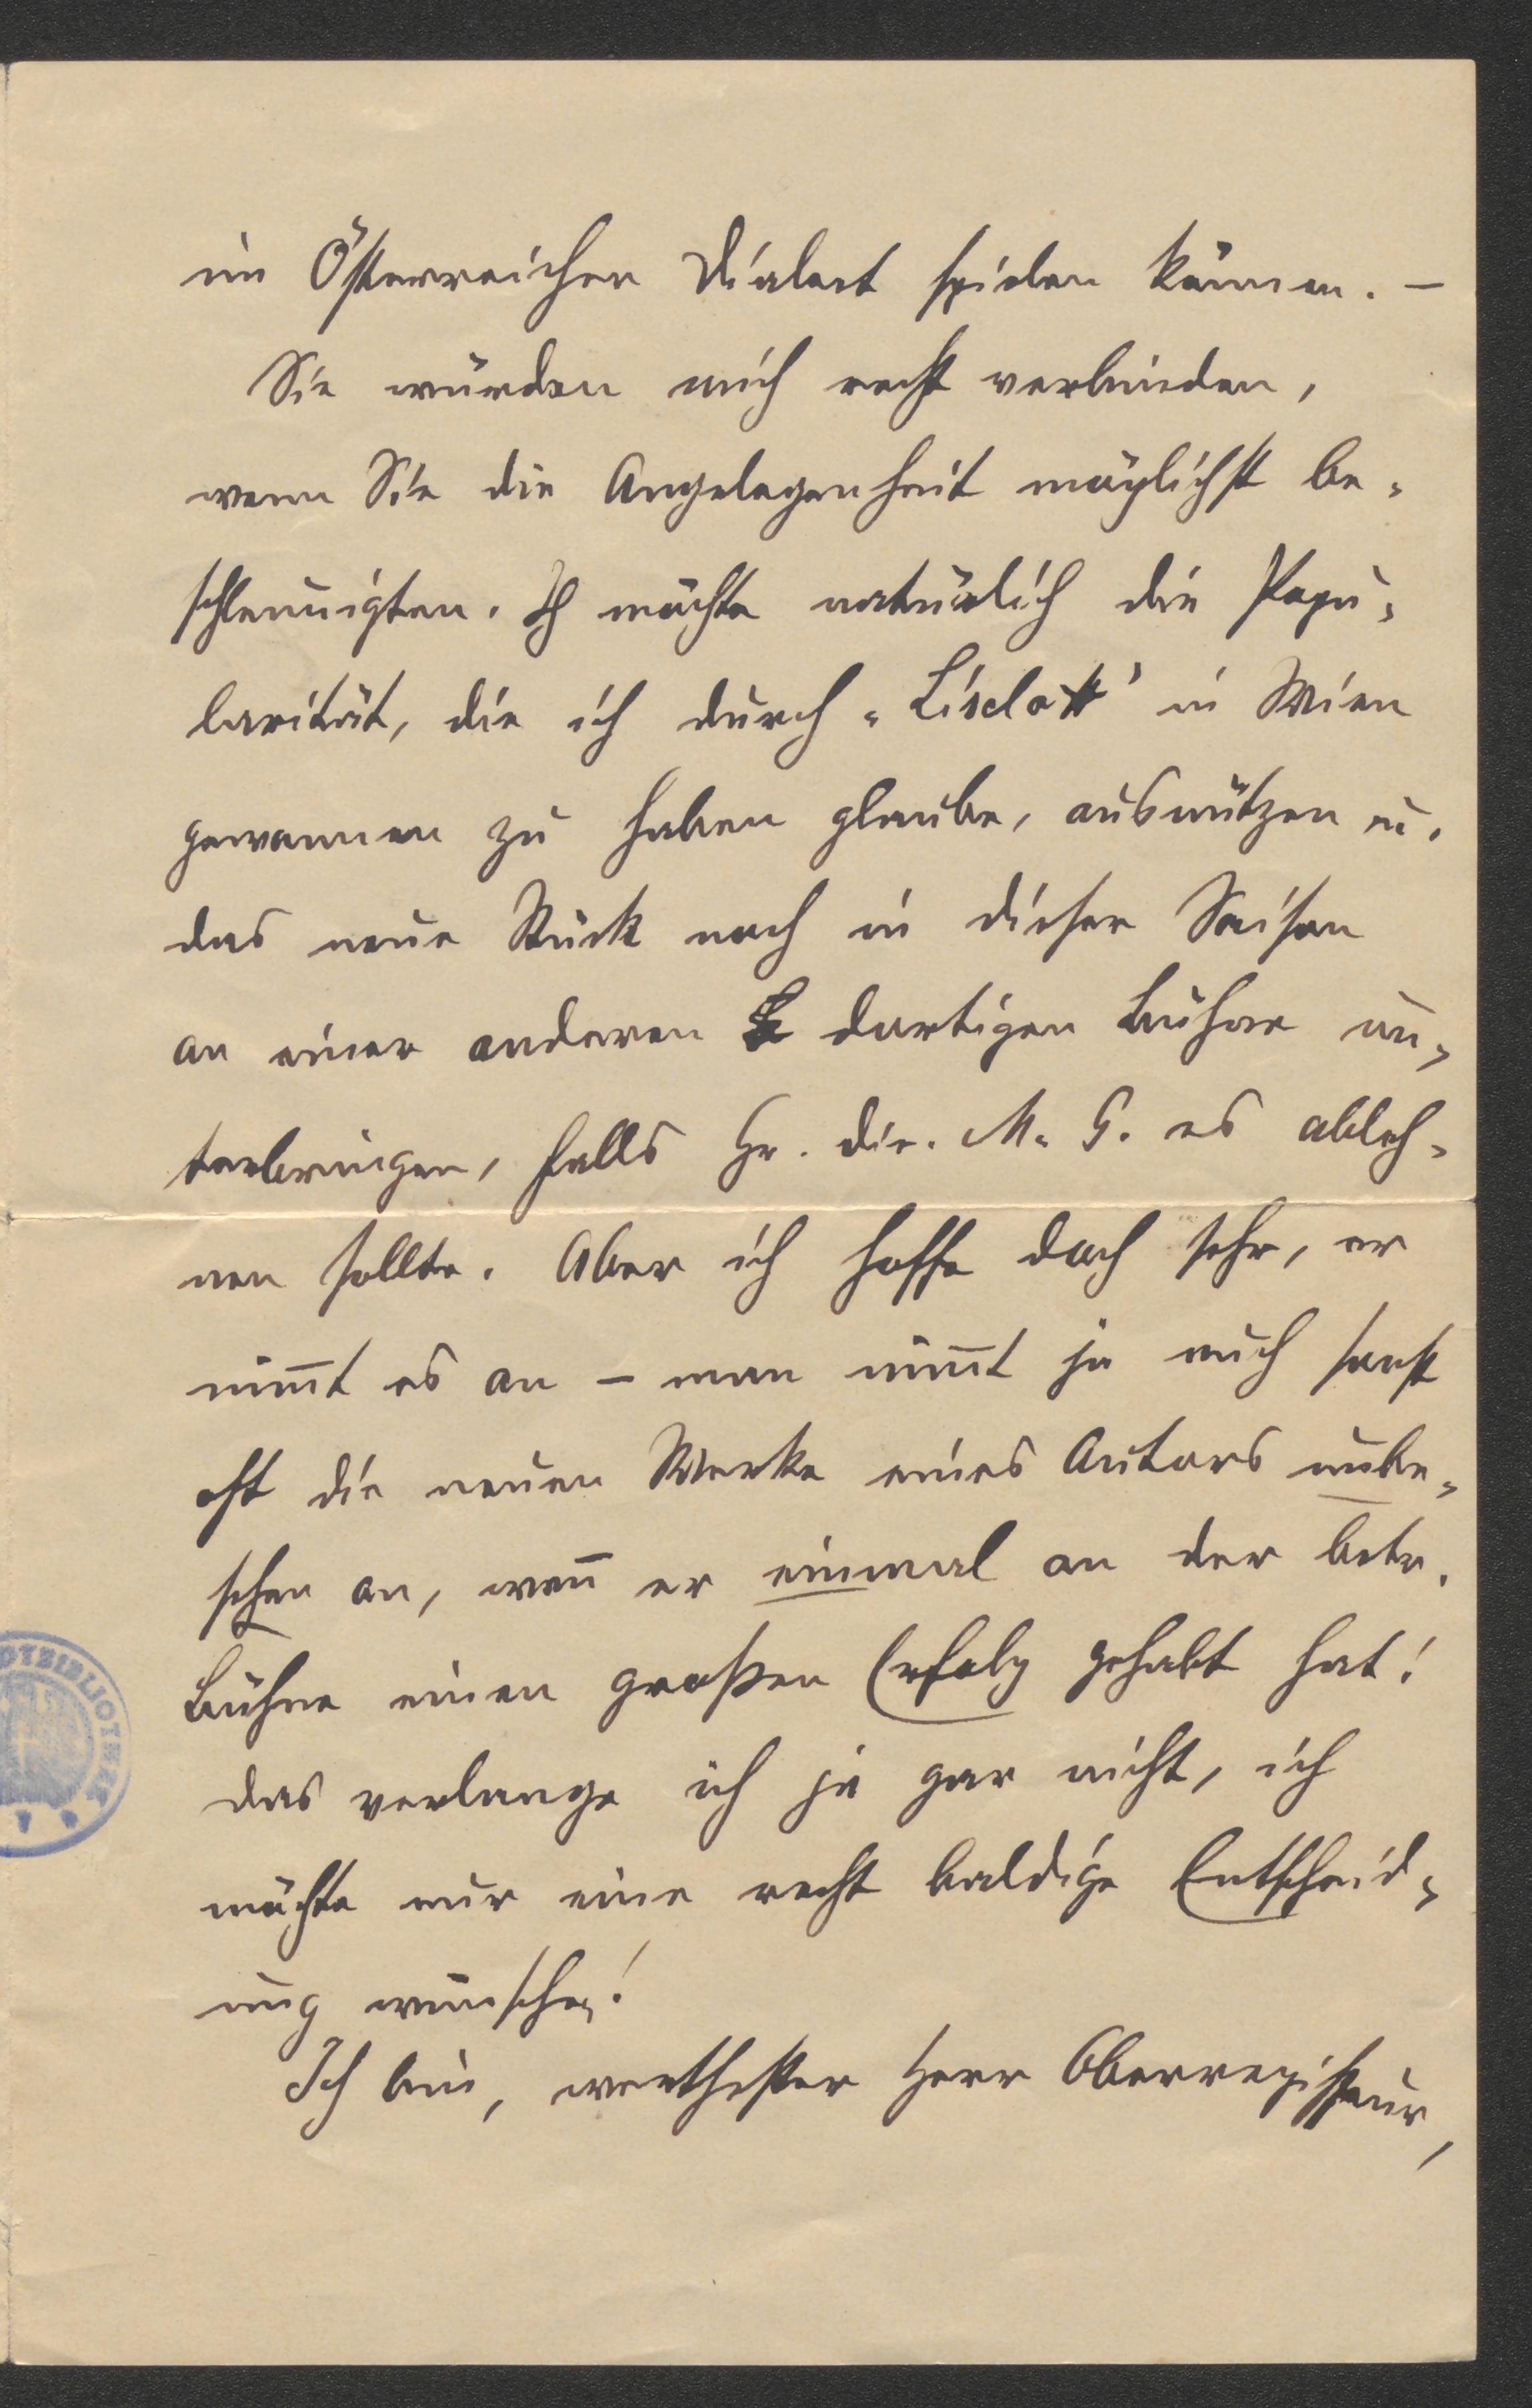 im Österreicher Dialect spielen können. –
Sie würden mich recht verbinden,
wenn Sie die Angelegenheit möglichst be-
schleunigten. Ich möchte natürlich die Popu-
larität, die ich durch „Liselott" in Wien
gewonnen zu haben glaube, ausnützen u.
das neue Stück noch in dieser Saison
an einer anderen dortigen Bühne un-
terbringen, falls Hr. Dir. M. G. es ableh-
nen sollte. Aber ich hoffe doch sehr, er
nim̅t es an – man nim̅t ja auch sonst
oft die neuen Werke eines Autors unbe-
sehen an, wen̅ er einmal an der betr.
Bühne einen großen Erfolg gehabt hat!
Das verlange ich ja gar nicht, ich
möchte nur eine recht baldige Entscheid-
ung wünschen!
Ich bin, werthester Herr Oberregisseur,
OTBIBLIOTHEK